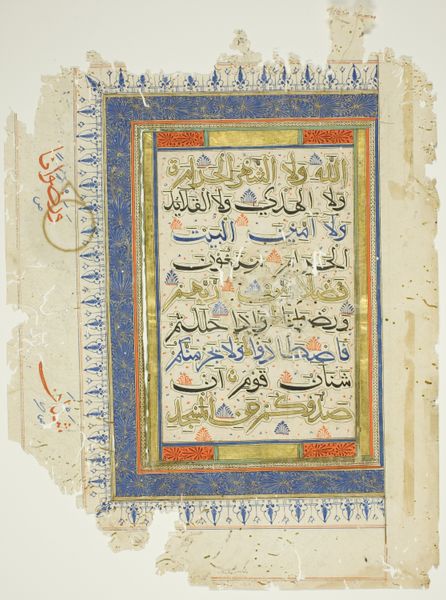 الله ولا الشهر الحرام
ولا الهدي ولا القلايد
ولا آمين البيت
الحرام يبتغون
فضلا من ربهم
ورضوانا واذا حللتم
فاصطادوا ولا يجرمنكم
شنان قوم ان
صدوكم عن المسجد
ورضوانا